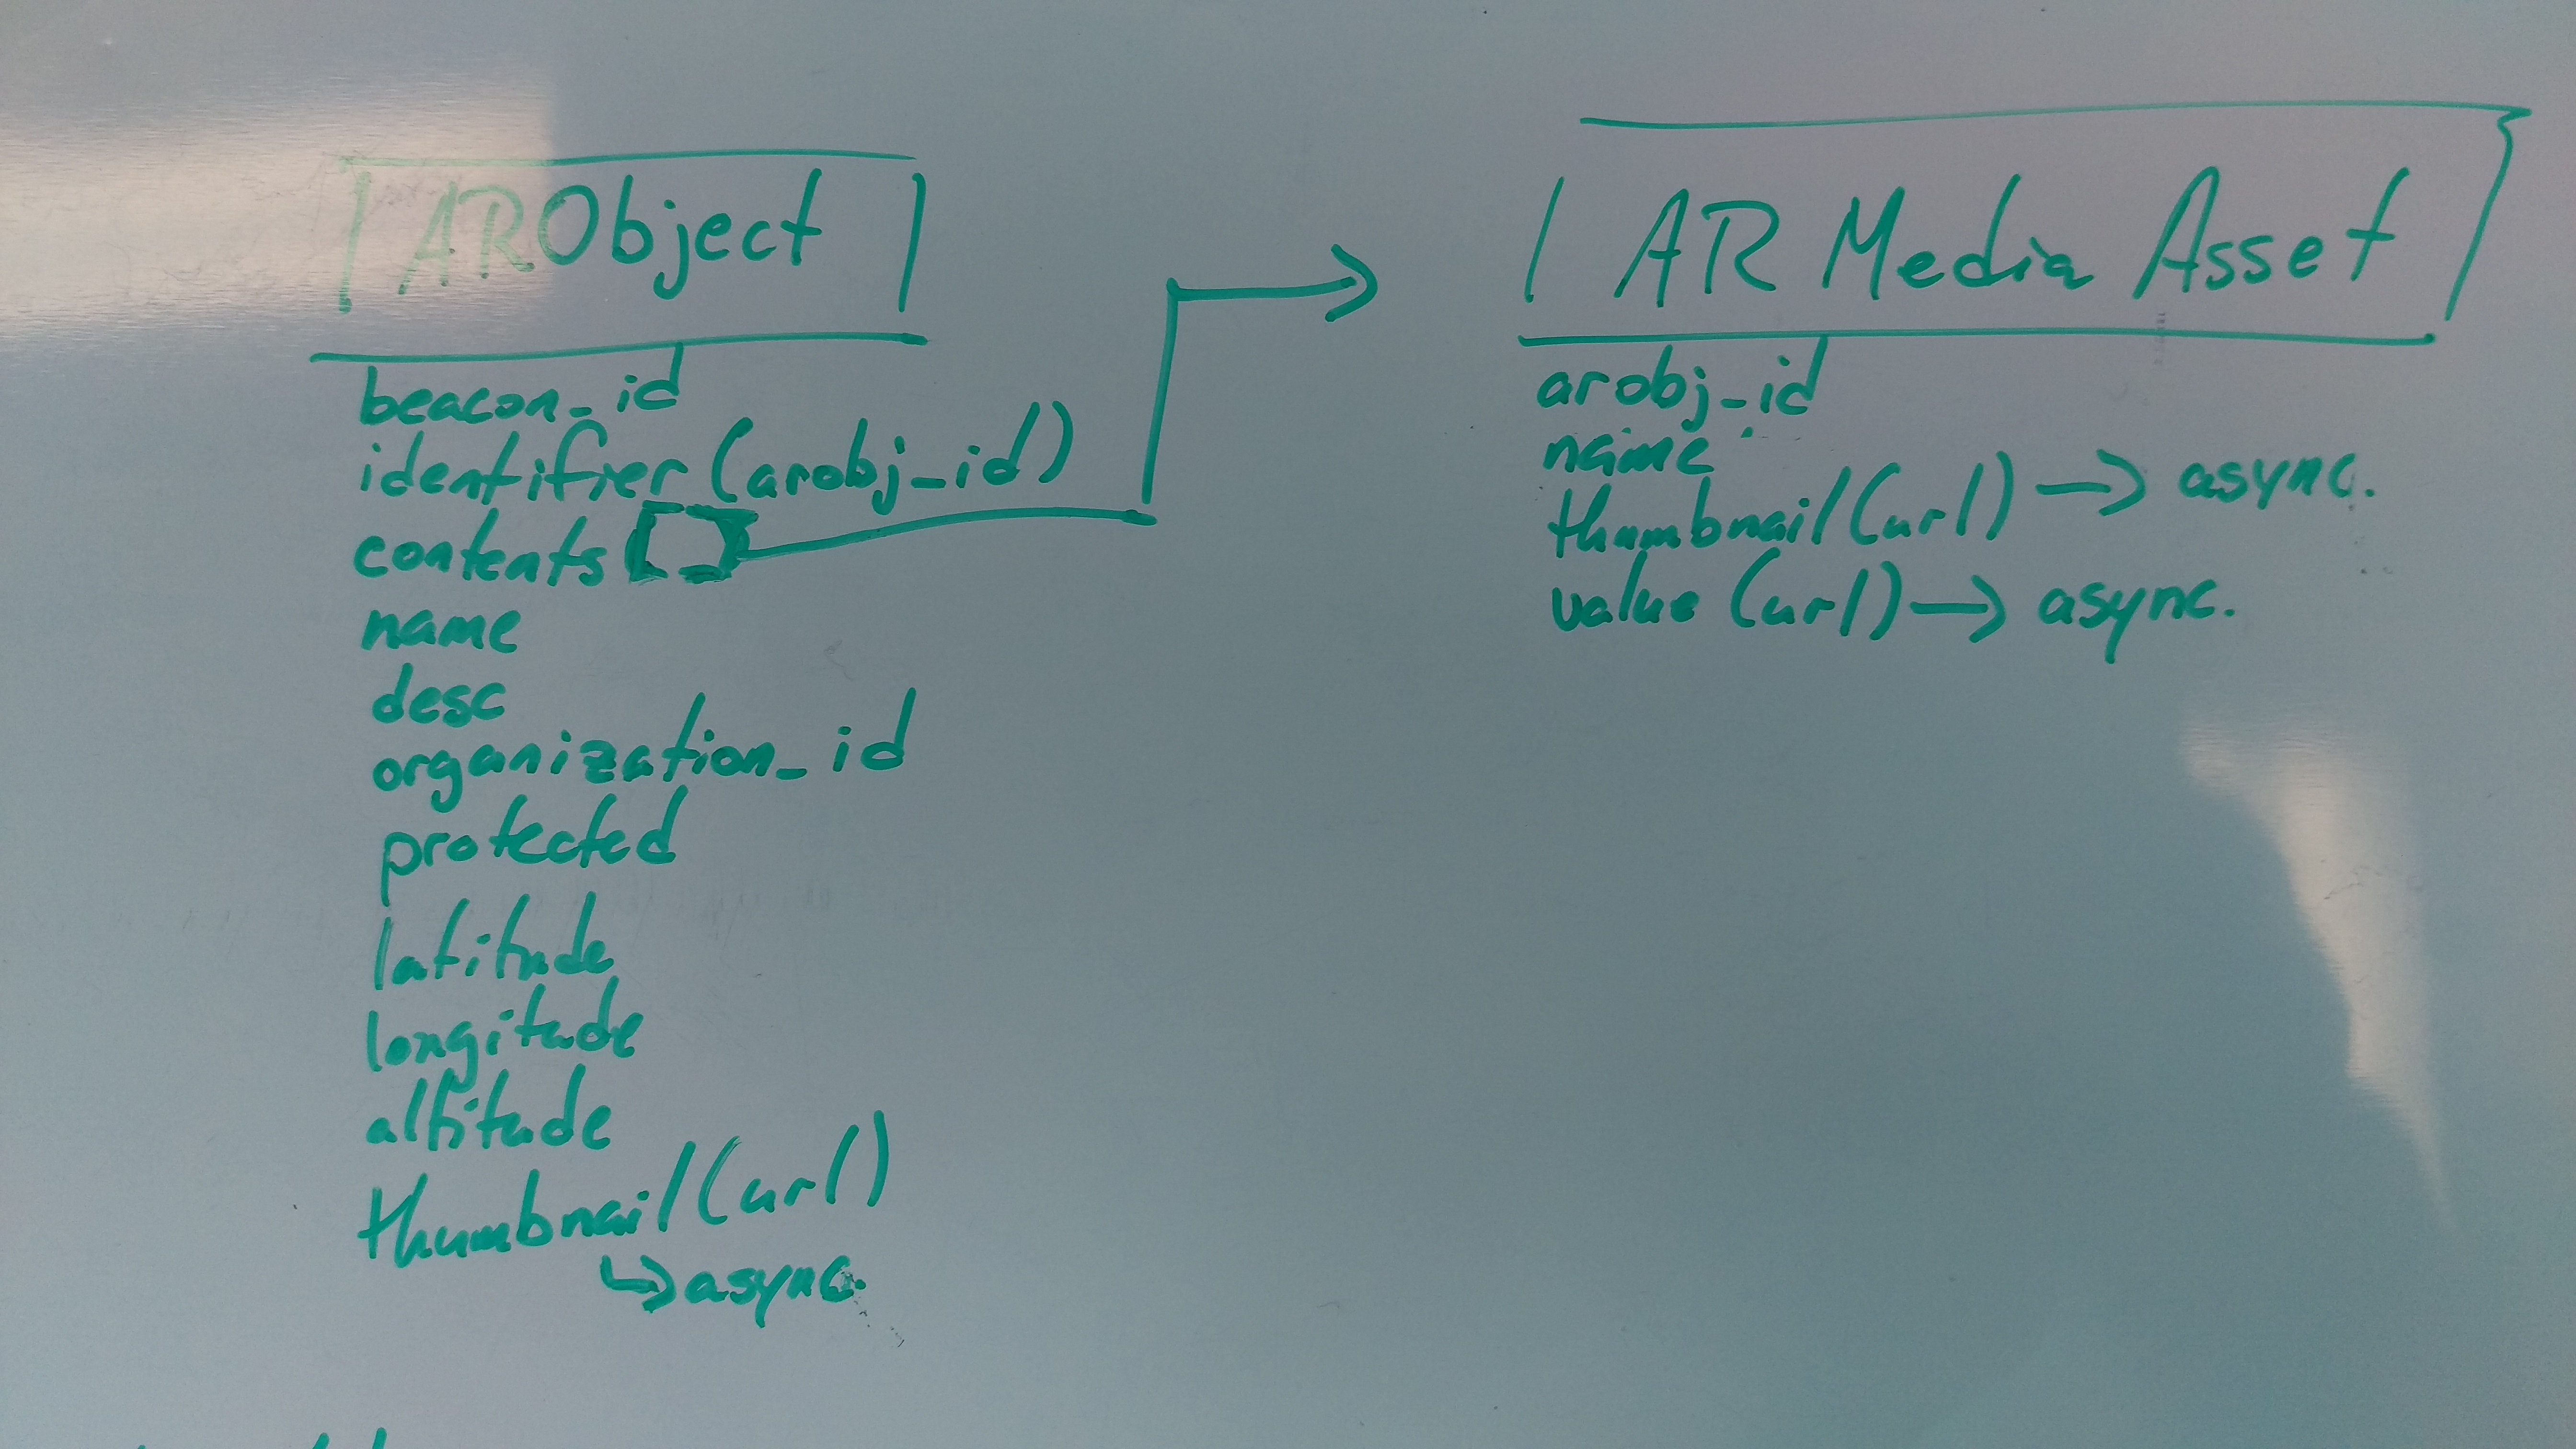 ARObject
beacon_id
identifier (arobj_id)
contents []
name
desc
organization_id
protected
latitude
longitude
altitude
thumbnail (url)
↳ async.
AR Media Asset
arobj_id
name
thumbnail (url) → async.
value (url) → async.